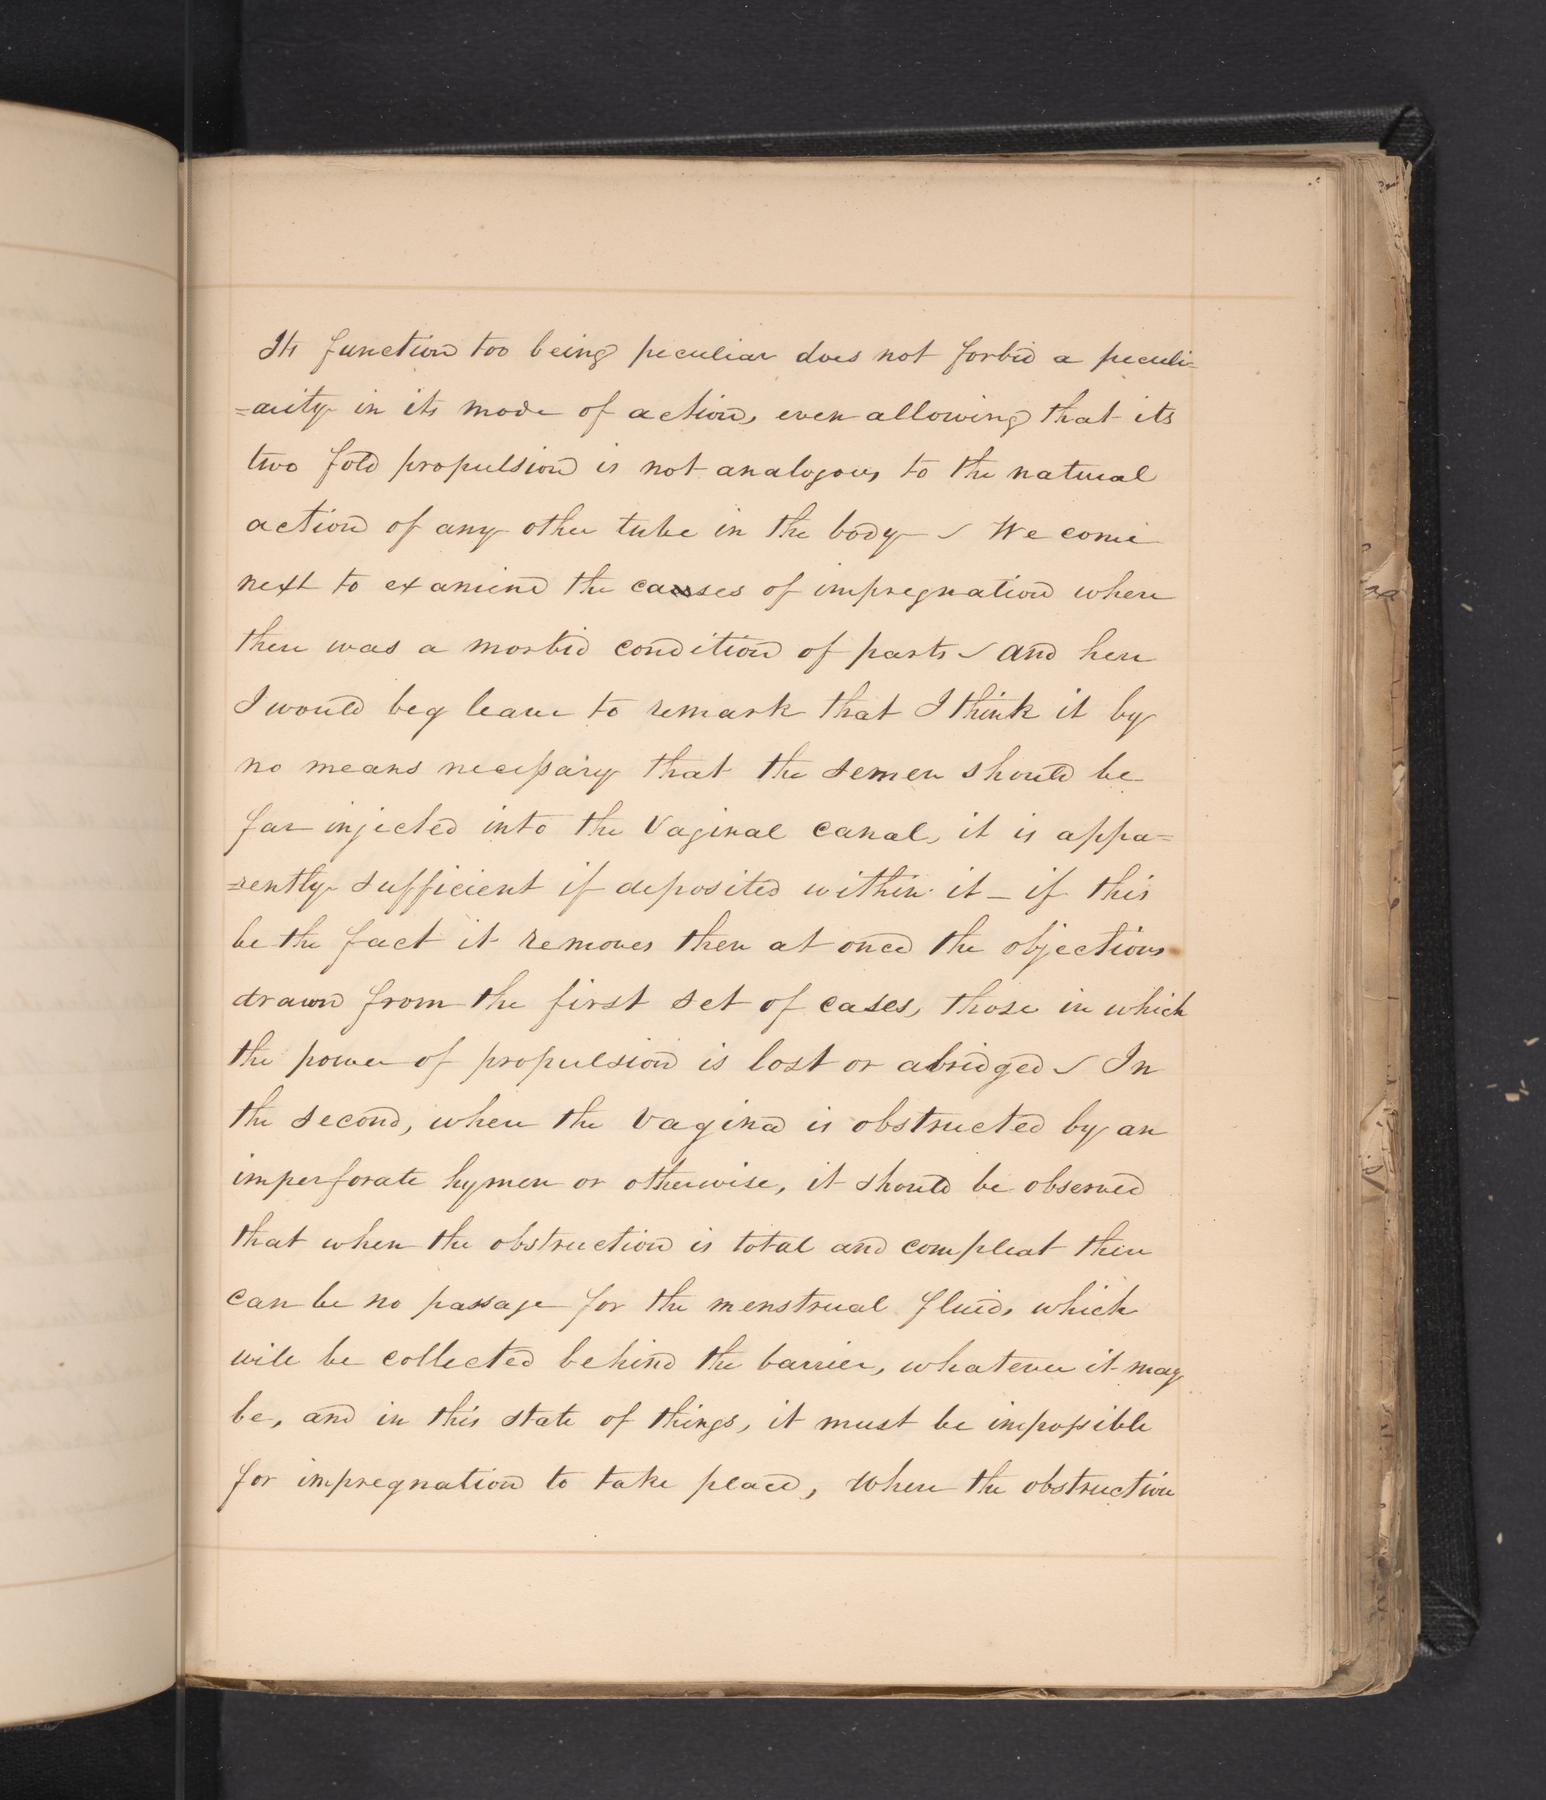 Its function too being peculiar does not forbid a peculi-
=arity in its mode of action, even allowing that its
two fold propulsion is not analogous to the natural
action of any other tube in the body – We come
next to examine the causes of impregnation where
there was a morbid condition of parts – and here
I would beg leave to remark that I think it by
no means necessary that the semen should be
far injected into the Vaginal canal, it is appa=
=rently sufficient if deposited within it – if this
be the fact it removes then at once the objections
drawn from the first set of cases, those in which
the power of propulsion is lost or abridged – In
the second, where the vagina is obstructed by an
imperforate hymen or otherwise, it should be observed
that when the obstruction is total and compleat there
can be no passage for the menstrual fluid, which
will be collected behind the barrier, whatever it may
be, and in this state of things, it must be impossible
for impregnation to take place, where the obstruction